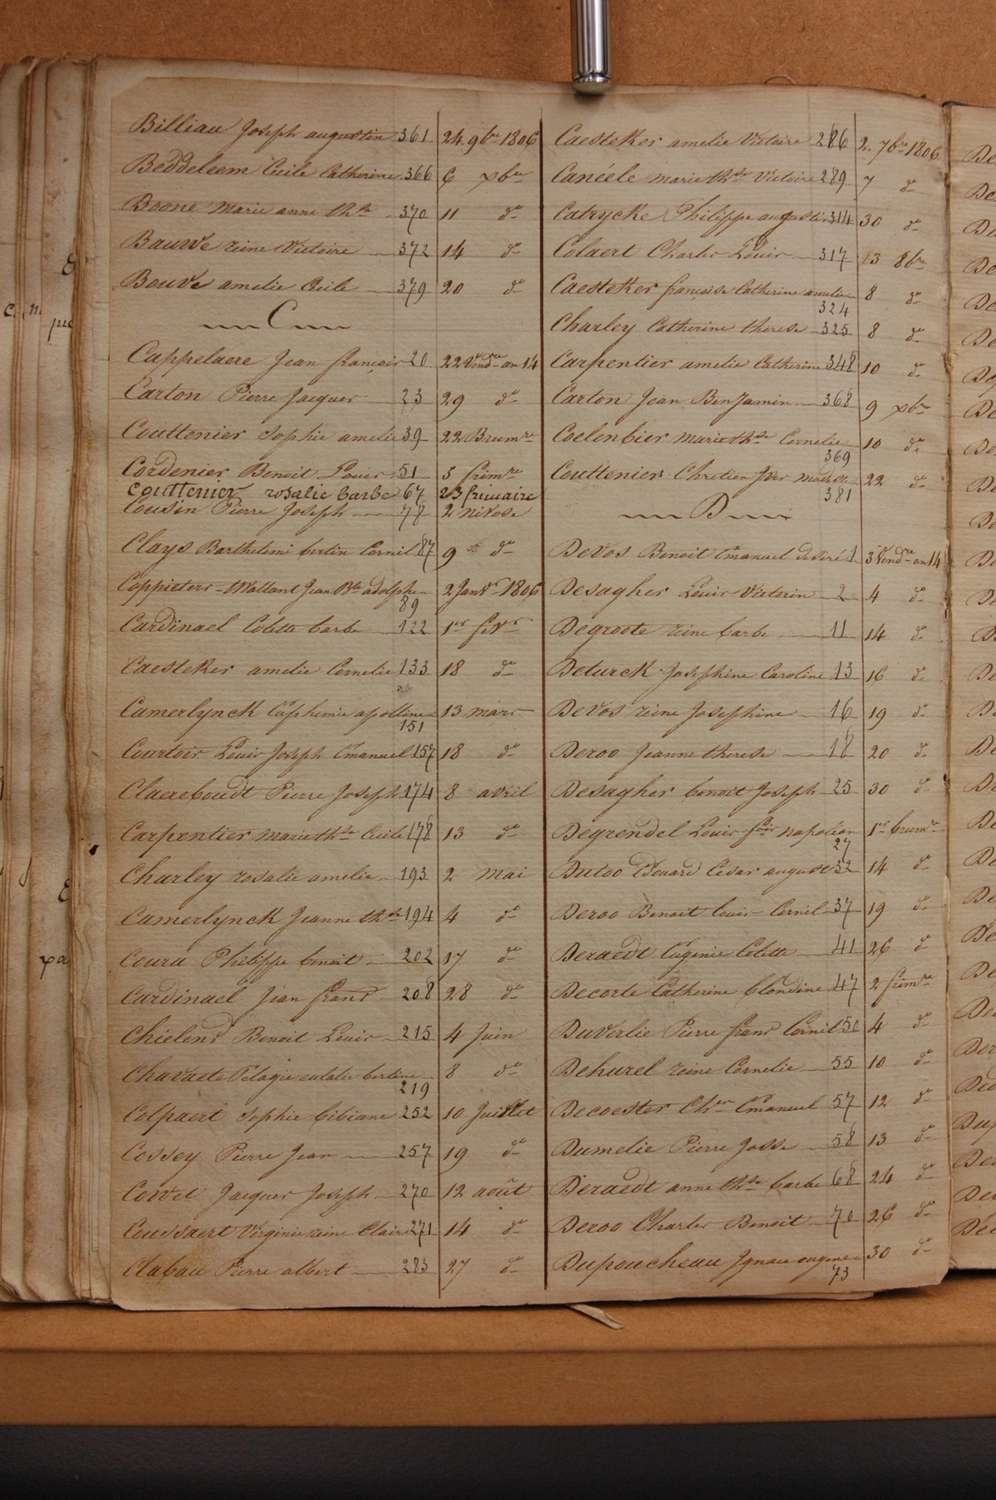 Billiau Joseph augustin 361 24 9bre 1806
Boddeleem Cecile Catherine 366 6 xbre
Boone Marie anne thse 370 11 do
Bauwe reine Victoire 372 14 do
Bouve amelie Cecile 379 20 do
C
Cappelaere Jean françois 20 22 Vendre an 14
Carton Pierre Jacques 23 29 do
Couttenier Sophie amelie 39 22 Brumre
Cordenier Benoit Louis 51 5 frimre
Couttenier rosalie barbe 67 23 frimaire
Cousin Pierre Joseph 77 2 nivose
Clays Barthelemi bertin Cornil 87 9 do
Coppieters-Wallant Jean Bte adolphe 2 Janvr 1806
89
Cardinael Colette barbe 122 1er fevr
Caesteker amelie Cornelie 133 18 do
Camerlynck Euphemie apolline 13 mars
151
Courtois Louis Joseph Emanuel 157 18 do
Claereboudt Pierre Joseph 174 8 avril
Carpentier marie thse Cecile 178 13 do
Charley rosalie amelie 193 2 mai
Camerlynck Jeanne thse 194 4 do
Couru Philippe benoit 202 17 do
Cardinael jean frans 208 28 do
Chielens Benoit Louis 215 4 Juin
Chavaete Pelagie eulalie bertine 8 do
219
Colpaert Sophie bibiane 252 10 Juillet
Cossey Pierre Jean 257 19 do
Corvet Jacques Joseph 270 12 août
Coussaert Virginie reine Claire 271 14 do
Clabau Pierre albert 283 27 do
Caesteker amelie Victoire 286 2 7bre 1806
Canéele marie thse Victoire 289 7 do
Catrycke Philippe augustin 314 30 do
Colaert Charles Louis 317 13 8bre
Caesteker françoise Catherine amelie 8 do
324
Charley Catherine therese 325 8 do
Carpentier amelie Catherine 348 10 do
Carton Jean Benjamin 368 9 xbre
Coelenbier marie thse Cornelie 10 do
369
Couttenier Chretien 22 do
381
D
Devos Benoit Emanuel desiré 1 3 Vendre an 14
Desagher Louis Victorin 2 4 do
Degroote reine barbe 11 14 do
Deturck Josephine Caroline 13 16 do
Devos reine Josephine 16 19 do
Deroo Jeanne therese 18 20 do
Desagher benoit Joseph 25 30 do
Degrendel Louis fçois napoleon 1er brumre
27
Dutoo Edouard Cesar auguste 32 14 do
Deroo Benoit Louis Cornil 37 19 do
Deraedt Eugenie Colette 41 26 do
Decorte Catherine blondine 47 2 frimre
Duvalie Pierre frans Cornil 51 4 do
Dehurel reine Cornelie 55 10 do
Decoester Chles Emanuel 57 12 do
Dumelie Pierre Josse 58 13 do
Deraedt anne thse barbe 68 24 do
Deroo Charles Benoit 70 26 do
Dupoucheau Ignace eugene 30 do
73